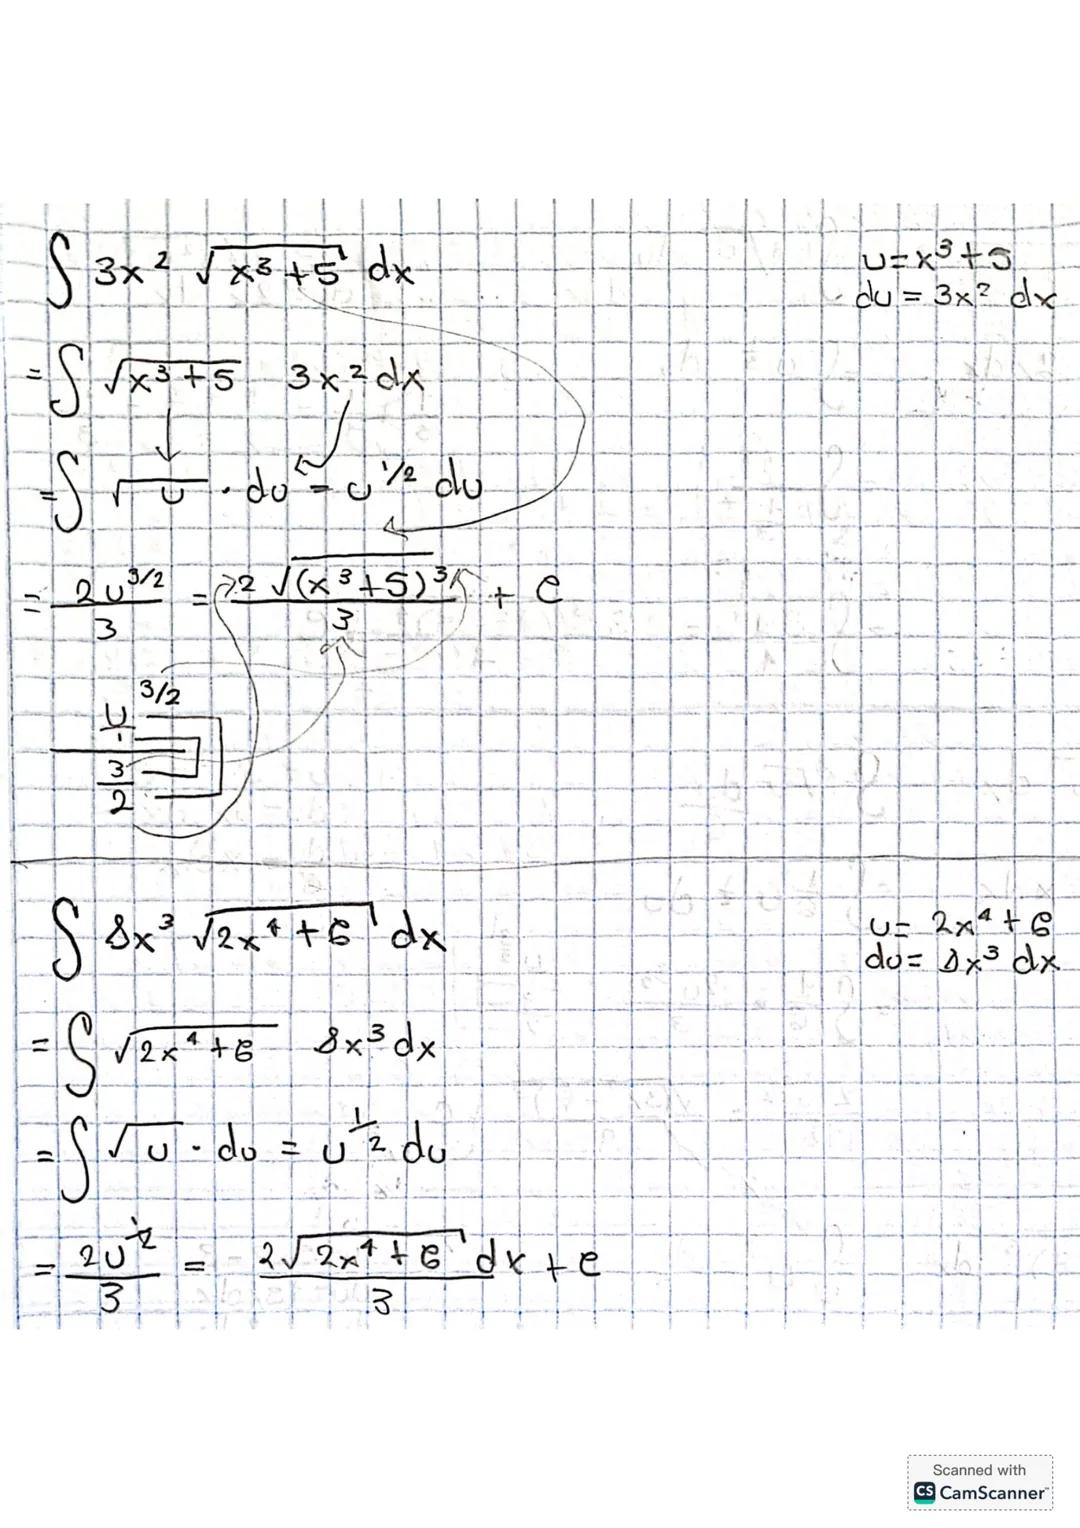 ∫ 3x² √(x³+5) dx
u=x³+5
du = 3x² dx
= ∫ √(x³+5) 3x² dx
= ∫ √u · du = u^1/2 du
= 2u^3/2 / 3 = 2 √(x³+5)³ / 3 + c
u^3/2
1
3
2
∫ 8x³ √(2x⁴+6) dx
u= 2x⁴+6
du= 8x³ dx
= ∫ √(2x⁴+6) 8x³ dx
= ∫ √u · du = u^1/2 du
= 2u^1/2 / 3 = 2√(2x⁴+6) dx / 3 + c
Scanned with
CS CamScanner